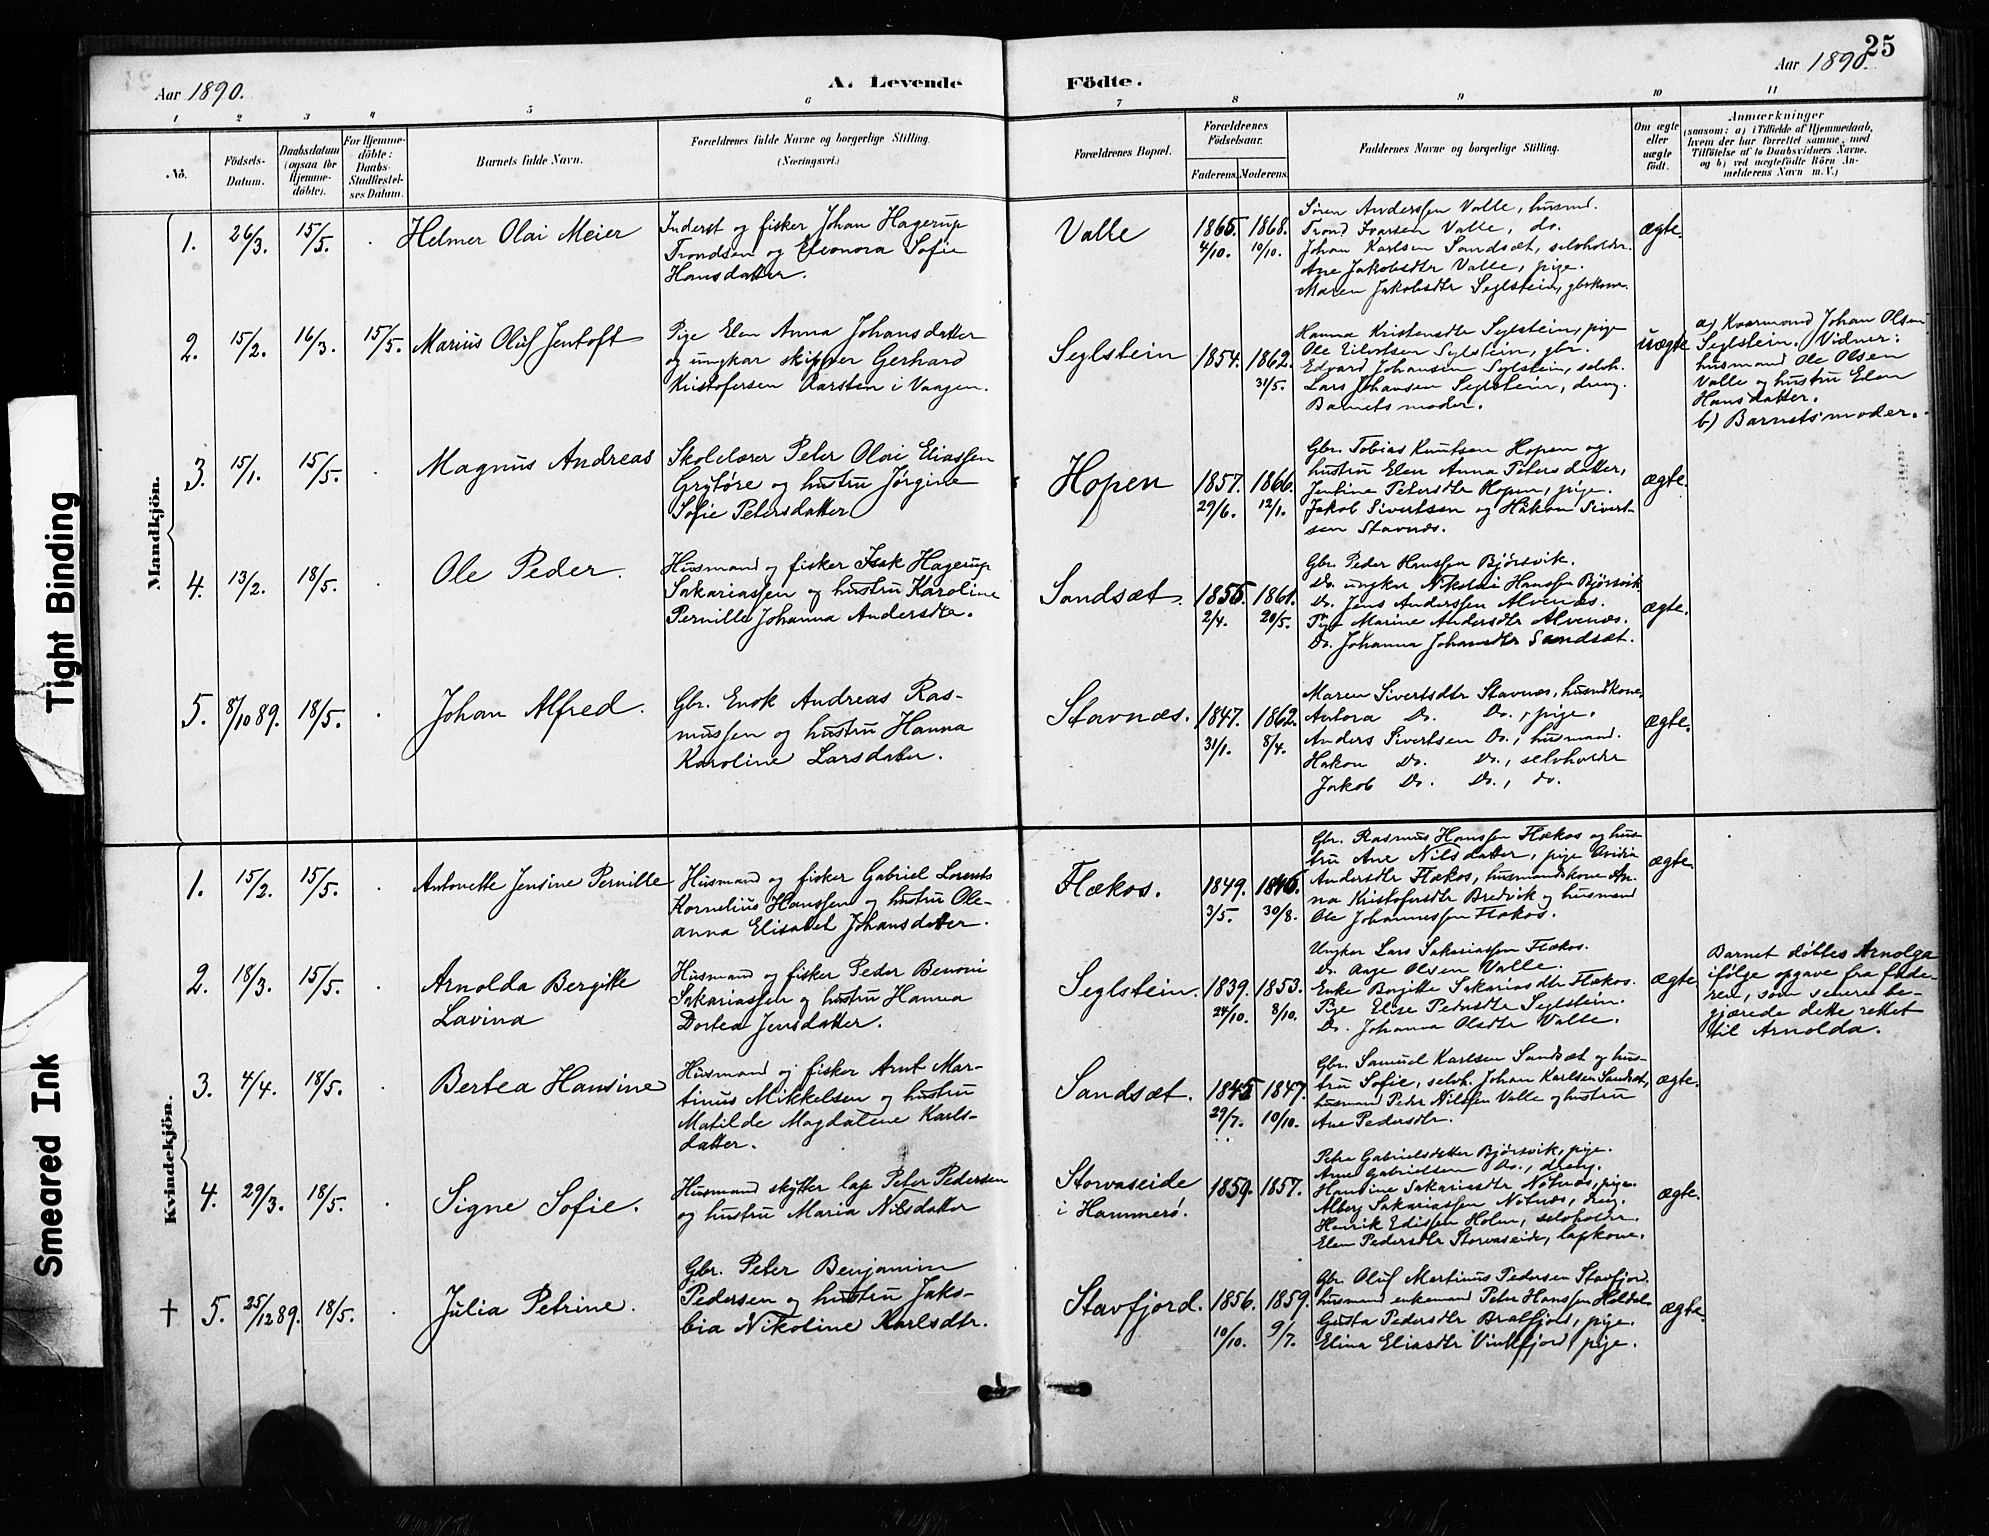 25
Aar 1890.
A. Levende
Födte.
Aar 1890.
1 2 3 4 5 6 7 8 9 10 11
No.
Födsels-Datum.
Daabsdatum (ogsaa for Hjemme-döbte).
For Hjemme-döbte: Daabs-Stadfæstel-ses Datum.
Barnets fulde Navn.
Forældrenes fulde Navne og borgerlige Stilling.
(Næringsvei.)
Forældrenes Bopæl.
Forældrenes Födselsaar.
Faderens. Moderens.
Faddernes Navne og borgerlige Stilling.
Om ægte eller uægte födt.
Anmærkninger
(saasom: a) i Tilfælde af Hjemmedaab,
hvem der har forrettet samme, med
Tilföielse af to Daabsvidners Navne.
og b) ved uægtefödte Börn An-
melderens Navn m. V.)
Mandkjön.
1. 26/3. 15/5. Helmer Olai Meier
Inderst og fisker Johan Hagerup
Trondsen og Eleonora Sofie
Hansdatter.
Valle 1865. 4/10. 1868. 10/10.
Søren Anderssen Valle, husmd.
Trond Ivarsen Valle, do.
Johan Karlsen Sandsæt, selvholder.
Ane Jakobsdtr Valle, pige.
Maren Jakobsdtr Seglstein, gbrkone.
ægte.
2. 15/2. 16/3. 15/5. Marius Oluf Jentoft
Pige Elen Anna Johansdatter
og ungkar skipper Gerhard
Kristofersen Aarsten i Vaagen.
Seglstein 1854. 1862. 31/5.
Hanna Kristensdtr Seglstein, pige
Ole Eilertsen Seglstein, gbr.
Edvard Johansen Seglstein, selvh.
Lars Johansen Seglstein, dreng.
Barnets moder.
uægte
a) Kvarmand Johan Olsen
Seglstein. Vidner:
husmand Ole Olsen
Valle og hustru Elen
Hansdatter.
b) Barnets moder.
3. 15/1. 15/5. Magnus Andreas
Skolelærer Peter Olai Eliassen
Grytøre og hustru Jørgine
Sofie Petersdatter
Hopen 1857. 29/6. 1866. 12/1.
Gbr. Tobias Knutsen Hopen og
hustru Elen Anna Petersdatter,
Jentine Petersdtr Hopen, pige.
Jakob Sivertsen og Håkon Sivert-
sen Stavnæs.
ægte.
4. 13/2. 18/5. Ole Peder.
Husmand og fisker Isak Hagerup
Sakariassen og hustru Karoline
Pernille Johanna Andersdtr.
Sandsæt. 1855. 2/4. 1861. 20/5.
Gbr. Peder Hanssen Bjørsvik.
Do. ungkar Nikolai Hanssen Bjørsvik
Do. Jens Anderssen Alvenæs.
Pige Marine Andersdtr Alvenæs.
Do. Johanna Johansdtr Sandsæt.
ægte.
5. 8/10 89. 18/5. Johan Alfred.
Gbr. Enok Andreas Ras-
mussen og hustru Hanna
Karoline Larsdatter.
Stavnæs. 1847. 31/1. 1862. 8/4.
Maren Sivertsdtr Stavnæs, husmdkone.
Antora Do. Do., pige.
Anders Sivertsen Do., husmand.
Hakon Do. Do., selvholder
Jakob Do. Do., do.
ægte.
Kvindekjön.
1. 15/2. 15/5. Antonette Jensine Pernille
Husmand og fisker Gabriel Lorents
Kornelius Hanssen og hustru Ole-
anna Elisabet Johansdatter.
Flækos. 1849. 3/5. 1846. 30/8.
Gbr. Rasmus Hanssen Flækos og hus-
tru Ane Nilsdatter, pige
Andersdtr Flækos, husmandskone An-
na Kristofersdtr Bredvik og husmand
Ole Johannessen Flækos.
ægte.
2. 18/3. 15/5. Arnolda Bergitte
Lavina
Husmand og fisker Peder Benoni
Sakariassen og hustru Hanna
Dortea Jensdatter.
Seglstein. 1839. 24/10. 1853. 8/10.
Ungkar Lars Sakariassen Flækos.
Do. Aage Olsen Valle.
Enke Bergitte Sakariasdtr Flækos.
Pige Elise Pedersdtr Seglstein.
Do. Johanna Olsdtr Valle.
ægte.
Barnet døbtes Arnolga
ifølge opgave fra fade-
ren, som senere be-
gjærede dette rettet
til Arnolda.
3. 4/4. 18/5. Bertea Hansine
Husmand og fisker Arnt Mar-
tinus Mikkelsen og hustru
Matilde Magdalene Karls-
datter.
Sandsæt. 1845 29/7. 1847. 10/10.
Gbr. Samuel Karlsen Sandsæt og hus-
tru Sofie, selvh. Johan Karlsen Sandsæt,
husmand Peder Nilssen Valle og hustru
Ane Pedersdtr.
ægte.
4. 29/3. 18/5. Signe Sofie.
Husmand skytter lap Peter Pedersen
og hustru Maria Nilsdatter
Storvaseide
i Hammerø. 1859. 1857.
Petra Gabrielsdatter Bjørsvik, pige.
Arne Gabrielsen Do., dreng.
Hansine Sakariasdtr Notnæs, pige.
Alberg Sakariassen Notnæs, dreng.
Henrik Edissen Holm, selvholder.
Elen Pedersdtr Storvaseide, lapkone.
ægte.
† 5. 25/12 89. 18/5. Julia Petrine.
Gbr. Peter Benjamin
Pedersen og hustru Jako-
bia Nikoline Karlsdtr.
Stavfjord. 1856. 10/10. 1859. 9/7.
Gbr. Oluf Martinus Pedersen Stavfjord.
husmand enkemand Peter Hanssen Heldal
Gusta Pedersdtr Bralfjord, pige.
Elina Eliasdtr Vinkfjord, pige.
ægte.
Tight Binding
Smeared Ink